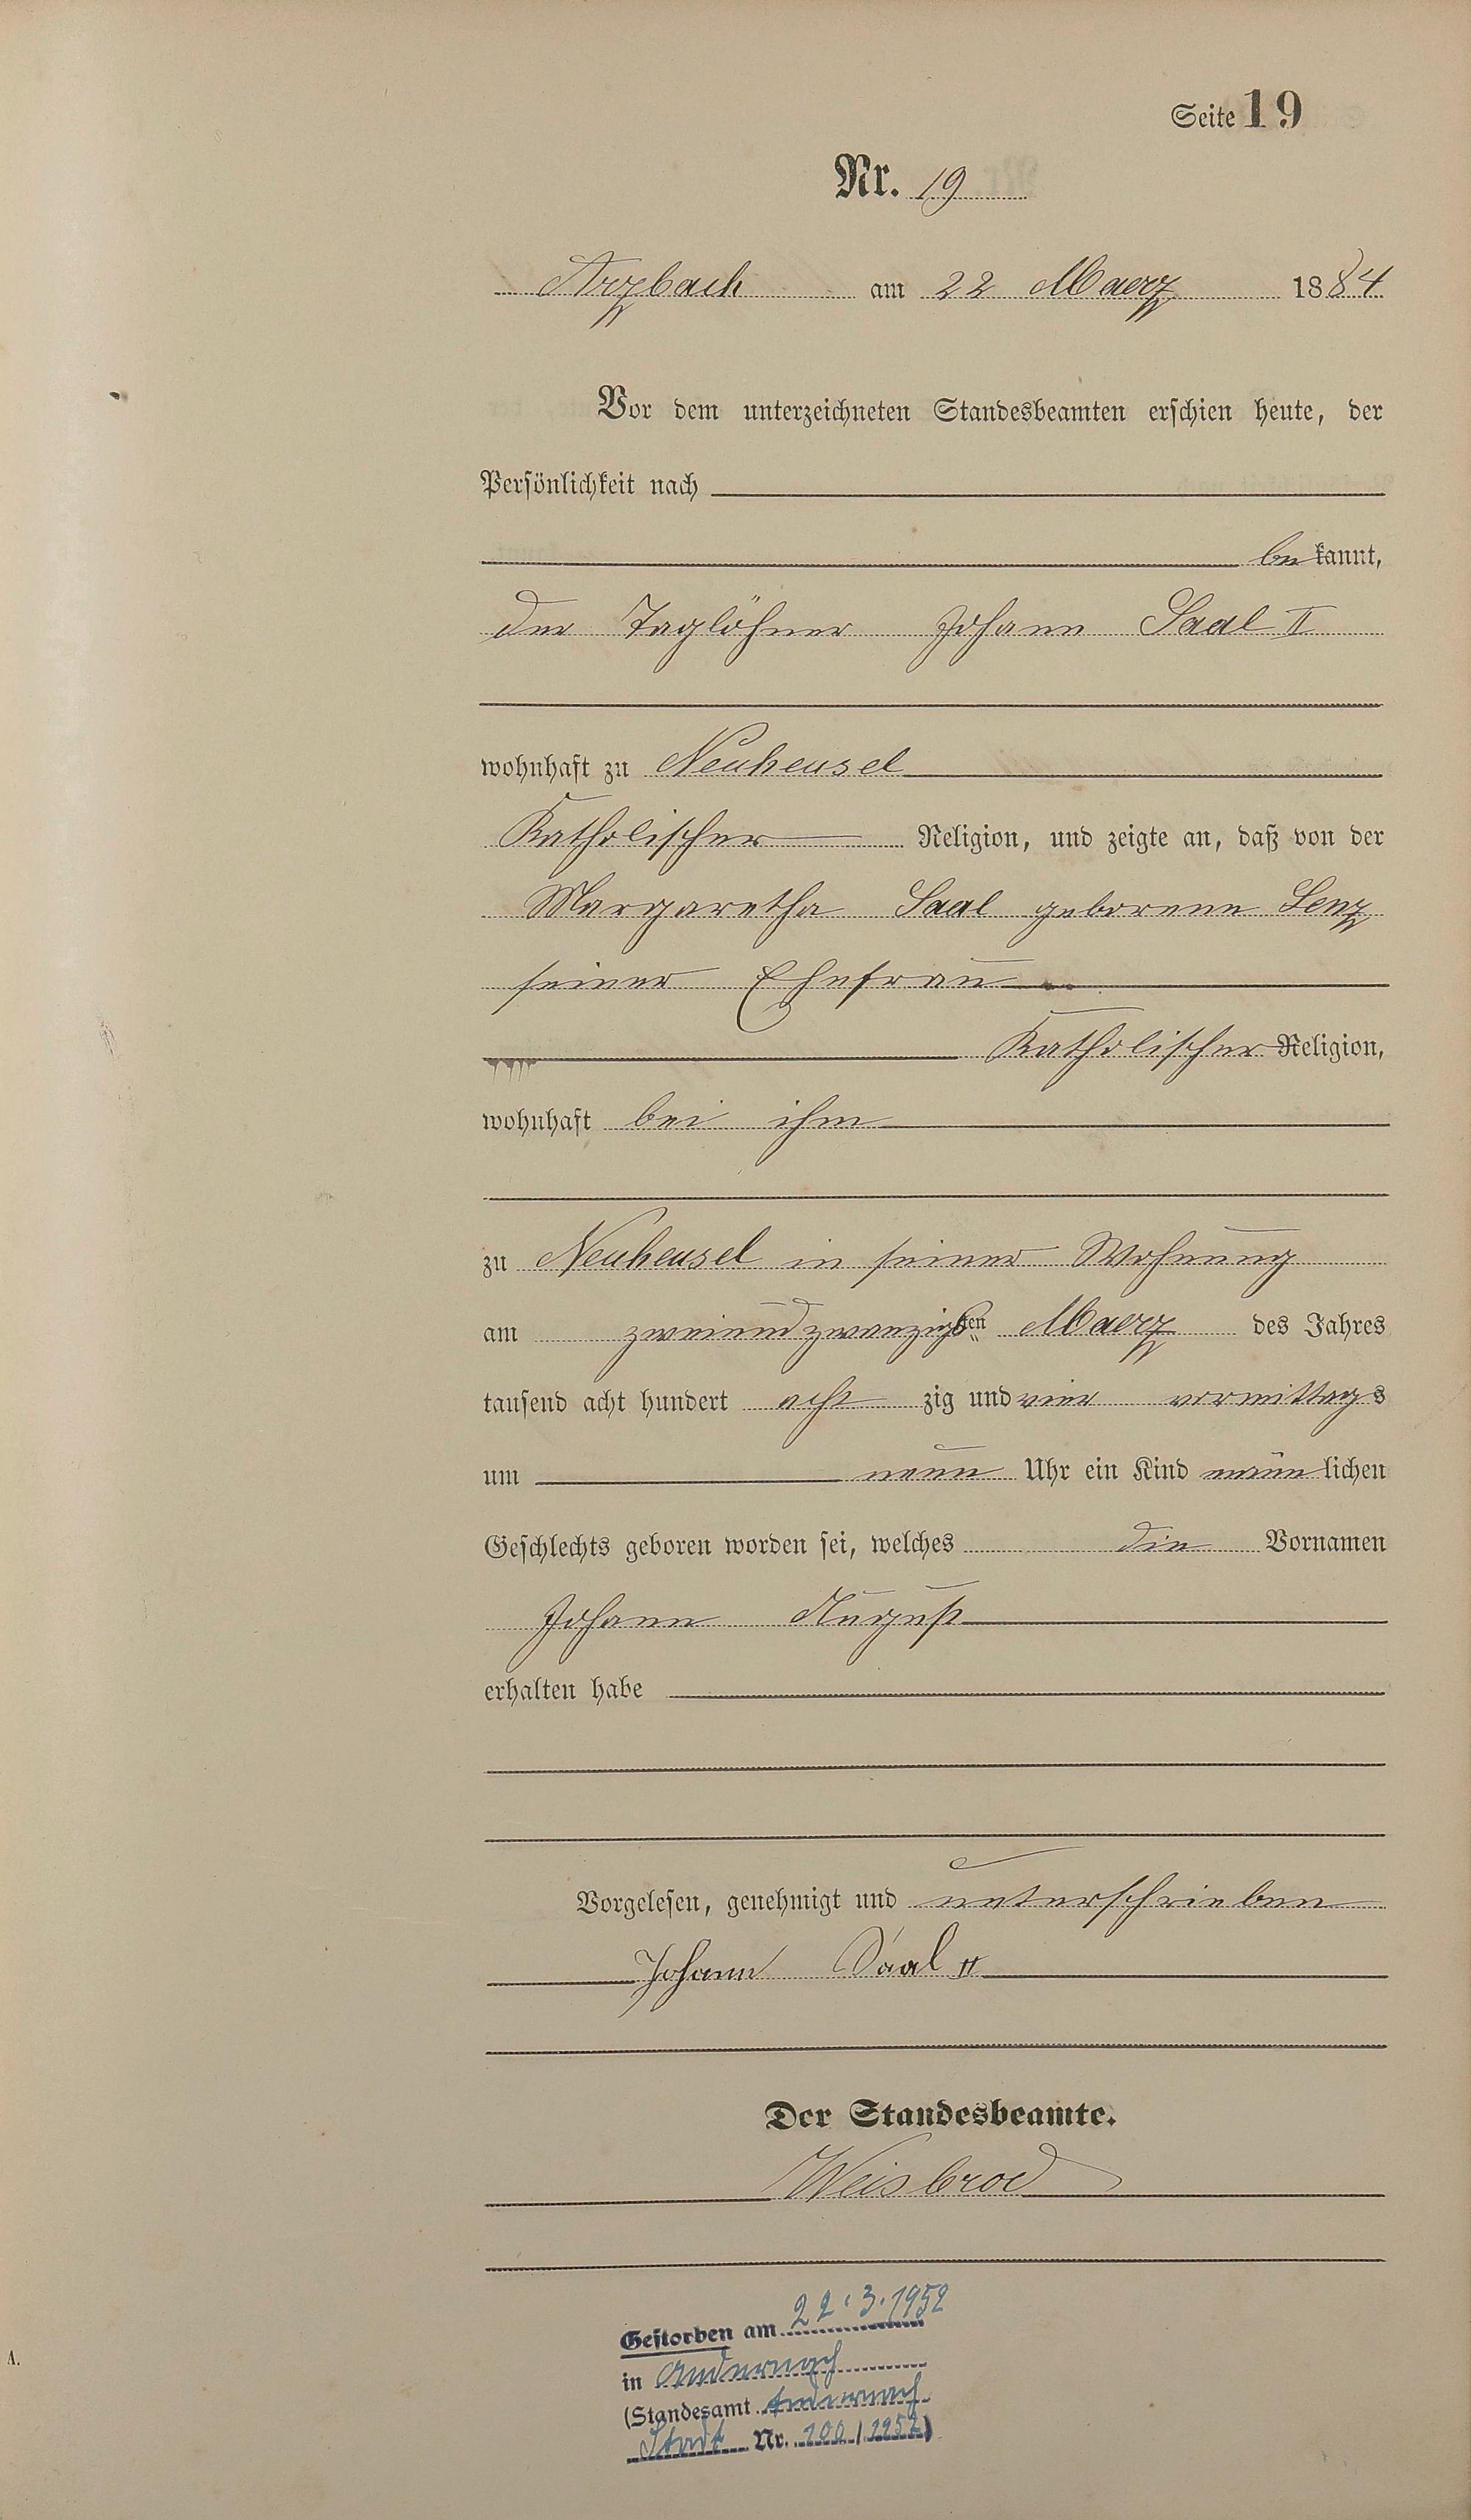 Seite 19
Nr. 19
Arzbach am 22 Maerz 1884
Vor dem unterzeichneten Standesbeamten erschien heute, der
Persönlichkeit nach
bekannt,
der Taglöhner Johann Saal II
wohnhaft zu Neuheusel
Katholischer Religion, und zeigte an, daß von der
Margaretha Saal geborene Lenz
seiner Ehefrau
Katholischer Religion,
wohnhaft bei ihm
zu Neuheusel in seiner Wohnung
am zweiundzwanzigsten Maerz des Jahres
tausend acht hundert achtzig und vier vormittags
um neun Uhr ein Kind männlichen
Geschlechts geboren worden sei, welches die Vornamen
Johann August
erhalten habe
Vorgelesen, genehmigt und unterschrieben
Johann Saal II
Der Standesbeamte.
Weisbrod
Gestorben am 22.3.1952
in Andernach
(Standesamt Andernach
Stadt Nr. 100/1952)
A.